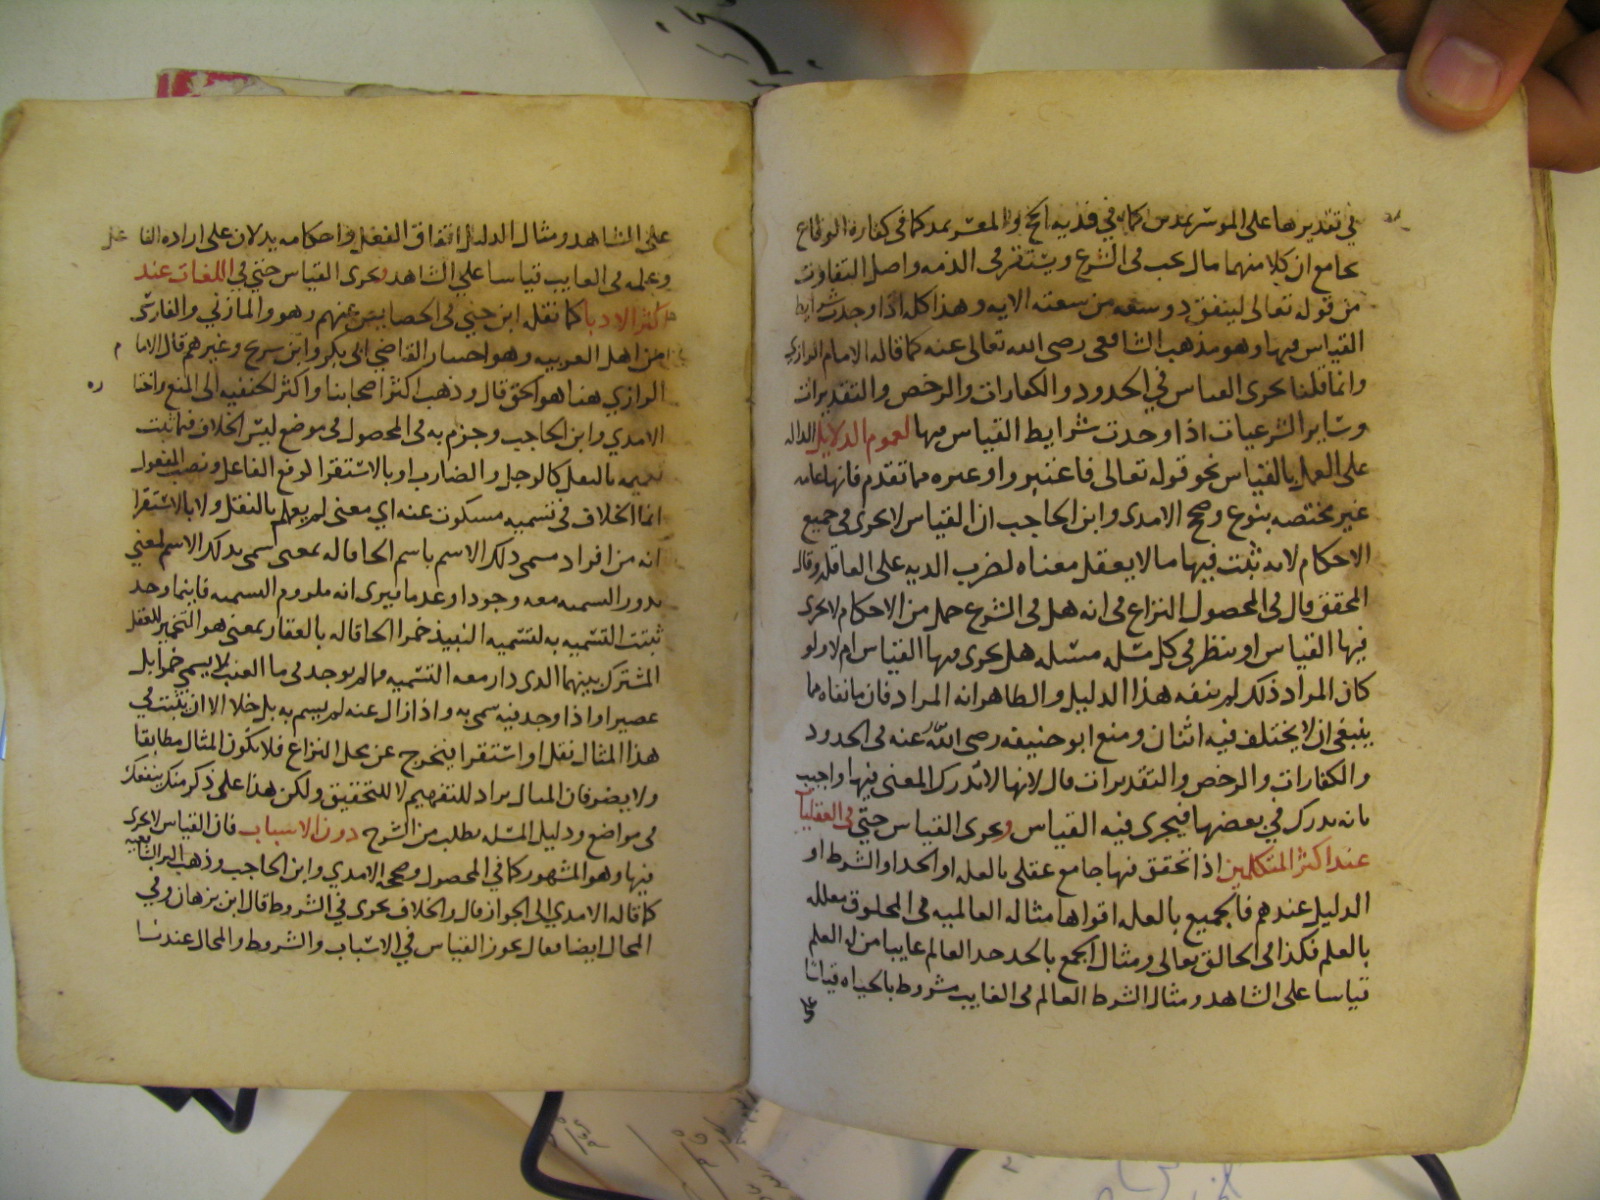 في تقديرها على الموسر بمدين كما في فدية الحج والمعسر بمد كما في كفارة الوقاع
بجامع ان كلا منهما مال يجب في الشرع ويستقر في الذمه واصل التفاوت
من قوله تعالى لينفق ذو سعة من سعته الايه وهذا كله اذا وجدت شرايط
القياس فيها وهو مذهب الشافعي رضى الله تعالى عنه كما قاله الامام الرازي
وانما قلنا يجرى القياس في الحدود والكفارات والرخص والتقديرات
وساير الشرعيات اذا وجدت شرايط القياس فيها لعموم الدلايل الداله
على العمل بالقياس نحو قوله تعالى فاعتبروا وغيره مما تقدم فانها عامه
غير مختصه بنوع وصحح الامدى وابن الحاجب ان القياس لا يجرى في جميع
الاحكام لانه ثبت فيها ما لا يعقل معناه لضرب الديه على العاقله وقال
المحقق قال في المحصول النزاع في انه هل في الشرع جمل من الاحكام لا يجرى
فيها القياس او ينظر في كل مسئله مسئله هل يجرى فيها القياس ام لا ولو
كان المراد ذلك لم ينفه هذا الدليل والظاهر انه المراد فان ما نفاه مما
ينبغى ان لا يختلف فيه اثنان ومنع ابو حنيفه رضى الله عنه في الحدود
والكفارات والرخص والتقديرات قال لانها لا تدرك المعنى فيها واجيب
بانه يدرك في بعضها فيجرى فيه القياس ويجرى القياس حتى في العقليات
عند اكثر المتكلمين اذا تحقق فيها جامع عقلى بالعله او الحد او الشرط او
الدليل عندهم فالجميع بالعله اقواها مثاله العالميه في المخلوق معلله
بالعلم فكذا في الخالق تعالى ومثال الجمع بالحد حد العالم غايبا من له العلم
قياسا على الشاهد ومثال الشرط العالم في الغايب مشروط بالحياه قياسا
على الشاهد ومثال الدليل اتفاق الفعل واحكامه يدلان على اراده الفاعل
وعلمه في الغايب قياسا على الشاهد ويجرى القياس حتى في اللغات عند
اكثر الادبا كما نقله ابن جني في الخصايص عنهم وهو والمازني والفارسى
من اهل العربيه وهو اختيار القاضي ابى بكر وابن سريج وغيرهم قال الامام
الرازي هنا هو الحق قال وذهب اكثر اصحابنا واكثر الحنفيه الى المنع واختاره
الامدي وابن الحاجب وجزم به في المحصول في موضع ليس الخلاف فيما ثبت
تعميمه بالنقل كالرجل والضارب او بالاستقرا لرفع الفاعل ونصب المفعول
انما الخلاف في تسميه مسكوت عنه اي معنى لم يعلم بالنقل ولا بالاستقرا
انه من افراد مسمى ذلك الاسم باسم الحاقا له بمعنى سمى بذلك الاسم لمعني
تدور التسميه معه وجودا وعدما فيرى انه ملزوم التسميه فاينما وجد
ثبتت التسميه به لتسميه النبيذ خمرا الحاقا له بالعقار بمعنى هو التخمير للعقل
المشترك بينهما الذى دار معه التسميه فما لم يوجد في ما العنب لا يسمى خمرا بل
عصيرا واذا وجد فيه سمى به واذا زال عنه لم يسم به بل خلا الا ان يثبت في
هذا المثال نقل او استقرا فيخرج عن محل النزاع فلا يكون المثال مطابقا
ولا يضر فان المثال يراد للتفهيم لا للتحقيق ولكن هذا على ذكر منك ينفعك
في مواضع ودليل المسئله يطلب من الشرح دون الاسباب فان القياس لا يجرى
فيها وهو المشهور كما في المحصول وصححه الامدي وابن الحاجب وذهب اكثر الشافعيه
كما قاله الامدي الى الجواز قال والخلاف يجرى في الشروط قال ابن برهان وفي
المحال ايضا فقال يجوز القياس في الاسباب والشروط والمحال عندنا